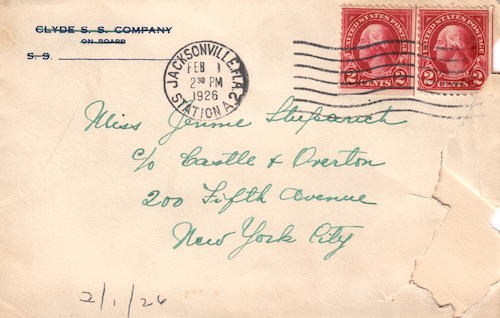 CLYDE S. S. COMPANY
ON BOARD
S. S.
JACKSONVILLE, FLA. 2
FEB 1
2 30 PM
1926
STATION A.
UNITED STATES POSTAGE
2 CENTS 2
UNITED STATES POSTAGE
2 CENTS 2
Miss Jennie
c/o Castle & Overton
200 Fifth Avenue
New York City
2/1/26